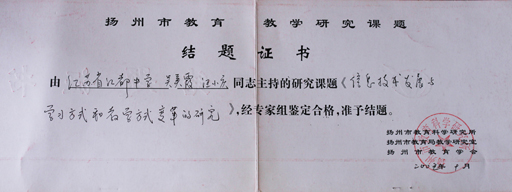 扬州市教育 教学研究课题
结题证书
由江苏省江都中学 吴美霞 汪小亮同志主持的研究课题《信息技术发展与
学习方式和教学方式变革的研究》,经专家组鉴定合格,准予结题。
扬州市教育科学研究所
扬州市教育局教学研究室
扬州市教育学会
月